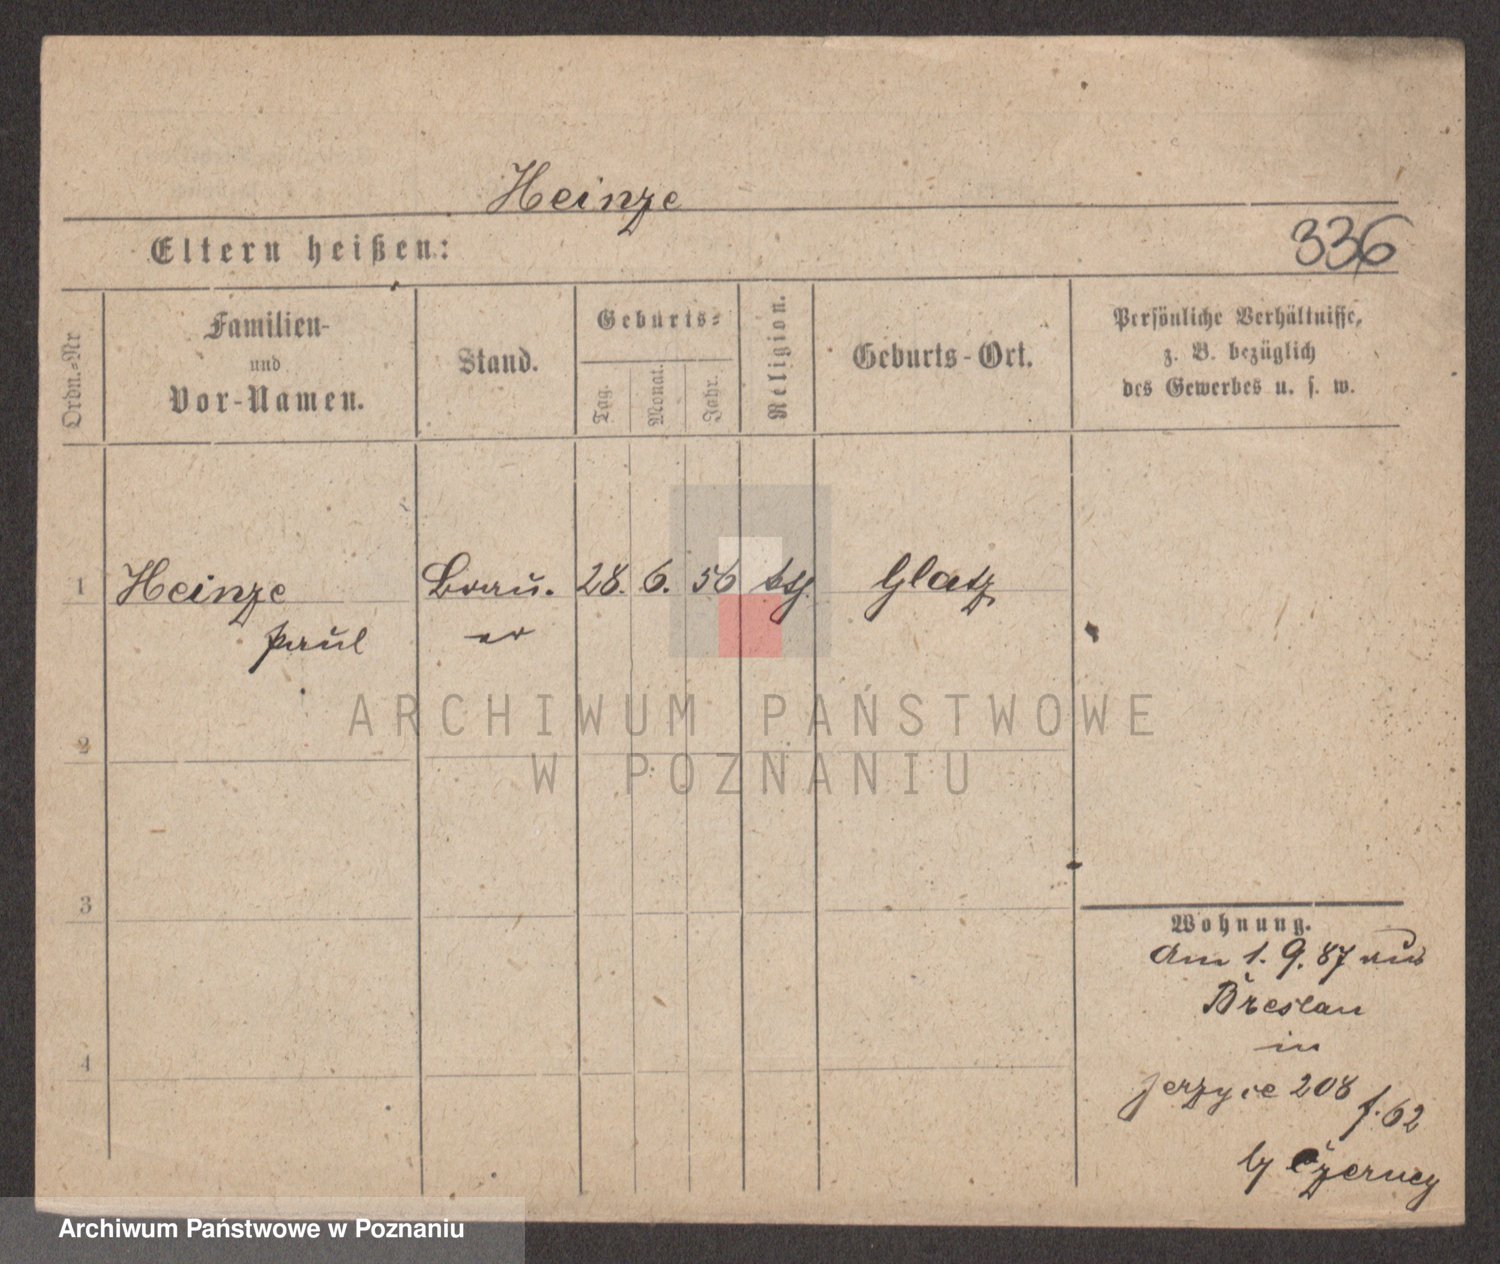 Heinze
336
Eltern heißen:
Ordn.-Nr
Familien-
und
Vor-Namen.
Stand.
Geburts-
Tag.
Monat.
Jahr.
Religion.
Geburts-Ort.
Persönliche Verhältnisse,
z. B. bezüglich
des Gewerbes u. s. w.
1 Heinze Brau. 28. 6. 56 Glatz
Paul er
ARCHIWUM PAŃSTWOWE
W POZNANIU
2
3
4
Wohnung.
Am 1. 9. 87 aus
Breslau
in
Jerzyce 208
f. 62
Czerney
Archiwum Państwowe w Poznaniu